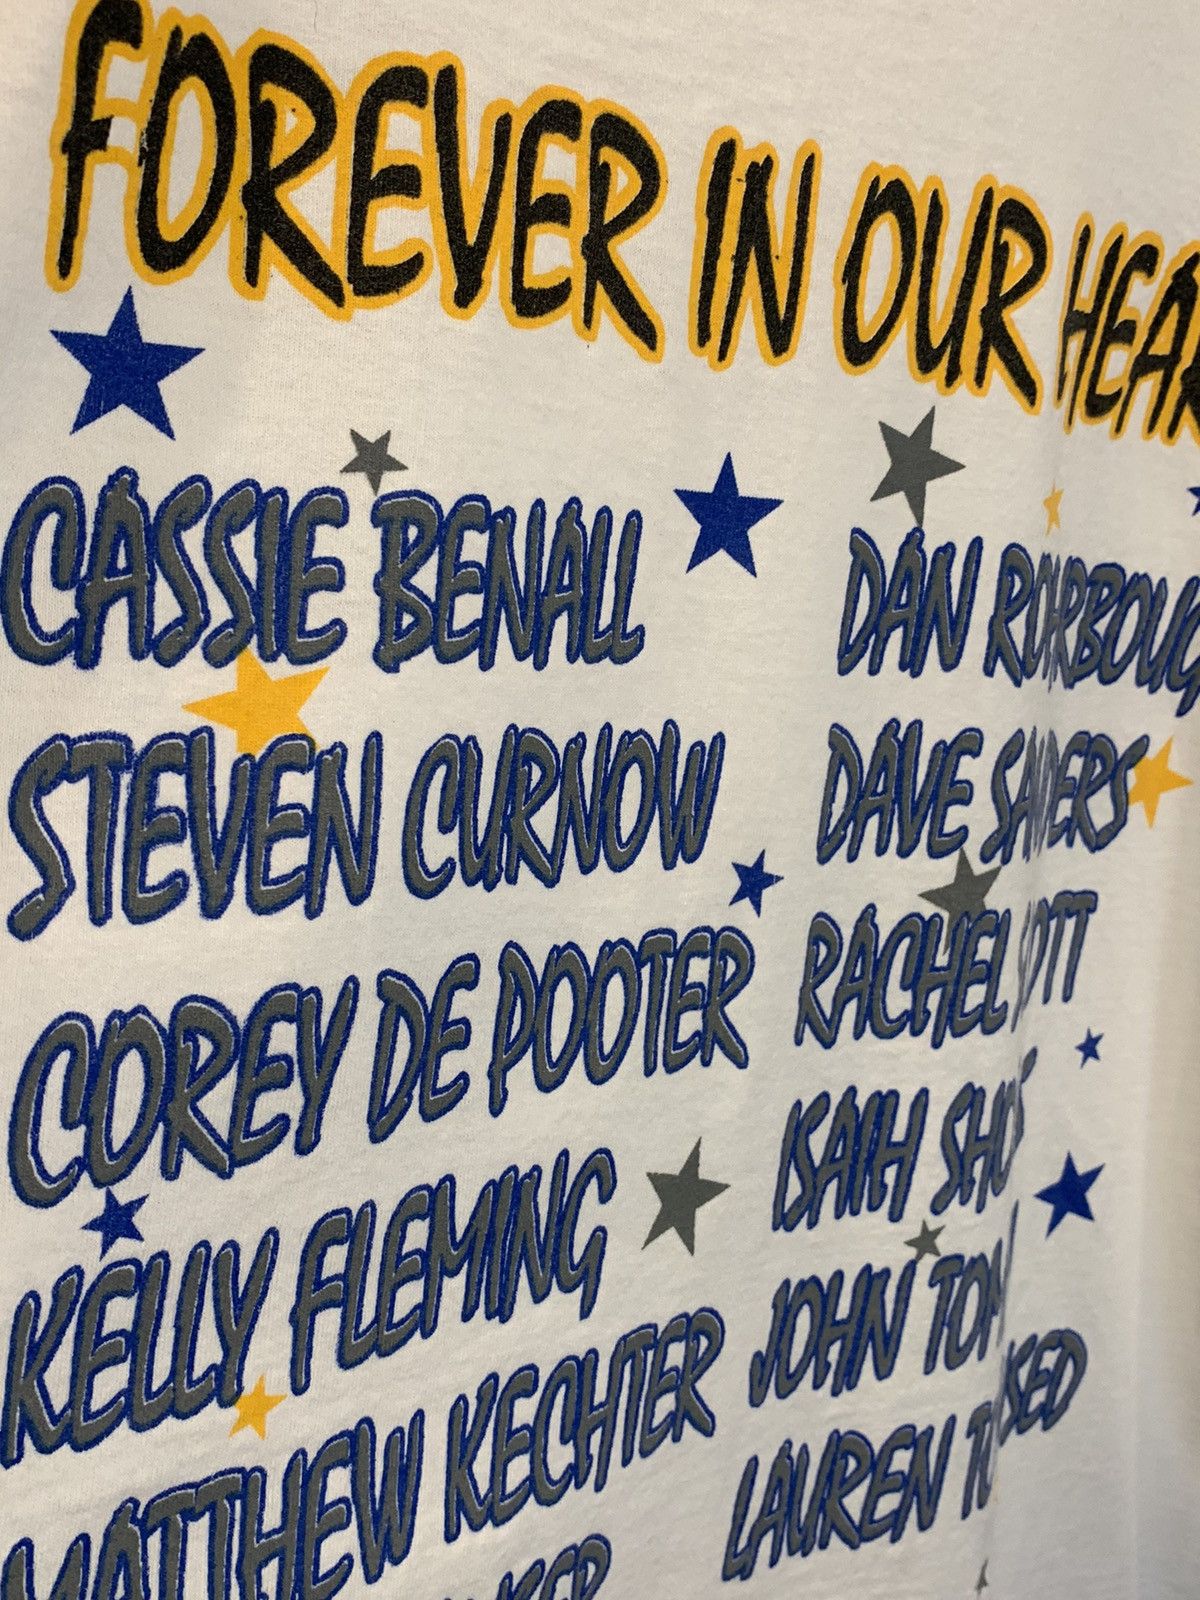 FOREVER IN OUR HEAR
CASSIE BENALL
STEVEN CURNOW
COREY DE POOTER
KELLY FLEMING
MATTHEW KECHTER
DAN ROHRBOUG
DAVE SANDERS
RACHEL
ISAIH
JOHN TOM
LAUREN